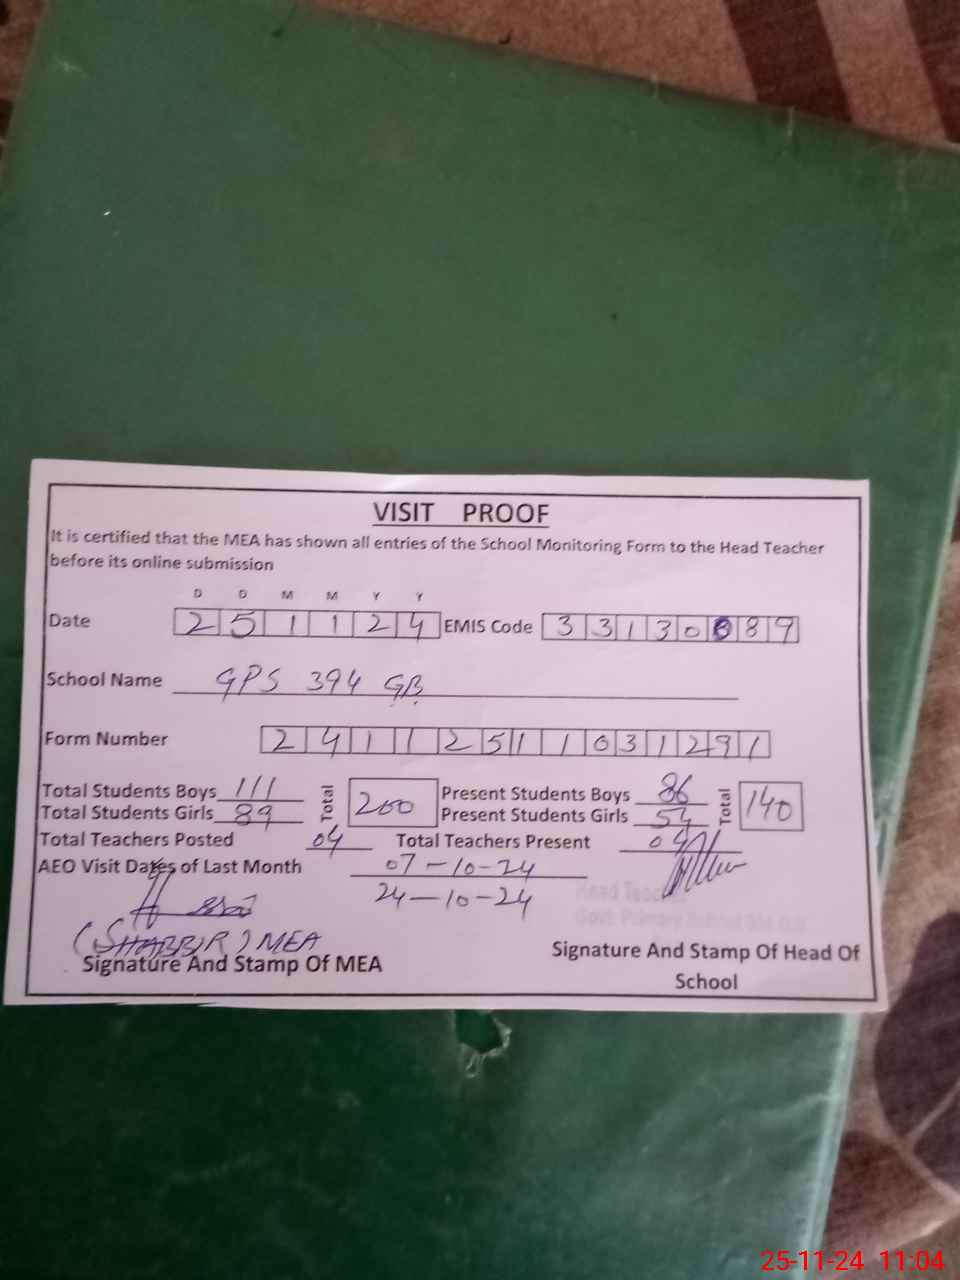 VISIT PROOF
It is certified that the MEA has shown all entries of the School Monitoring Form to the Head Teacher
before its online submission
D D M M Y Y
Date 2 5 1 1 2 4 EMIS Code 3 3 1 3 0 0 8 9
School Name GPS 394 GB
Form Number 2 4 1 1 2 5 1 1 0 3 1 2 9 1
Total Students Boys 111 Total 200 Present Students Boys 86 Total 140
Total Students Girls 89 Present Students Girls 54
Total Teachers Posted 04 Total Teachers Present 04
AEO Visit Dates of Last Month 07-10-24
24-10-24
Head Teacher
Govt. Primary School 394 G.B
(SHABBIR) MEA
Signature And Stamp Of MEA
Signature And Stamp Of Head Of
School
25-11-24 11:04